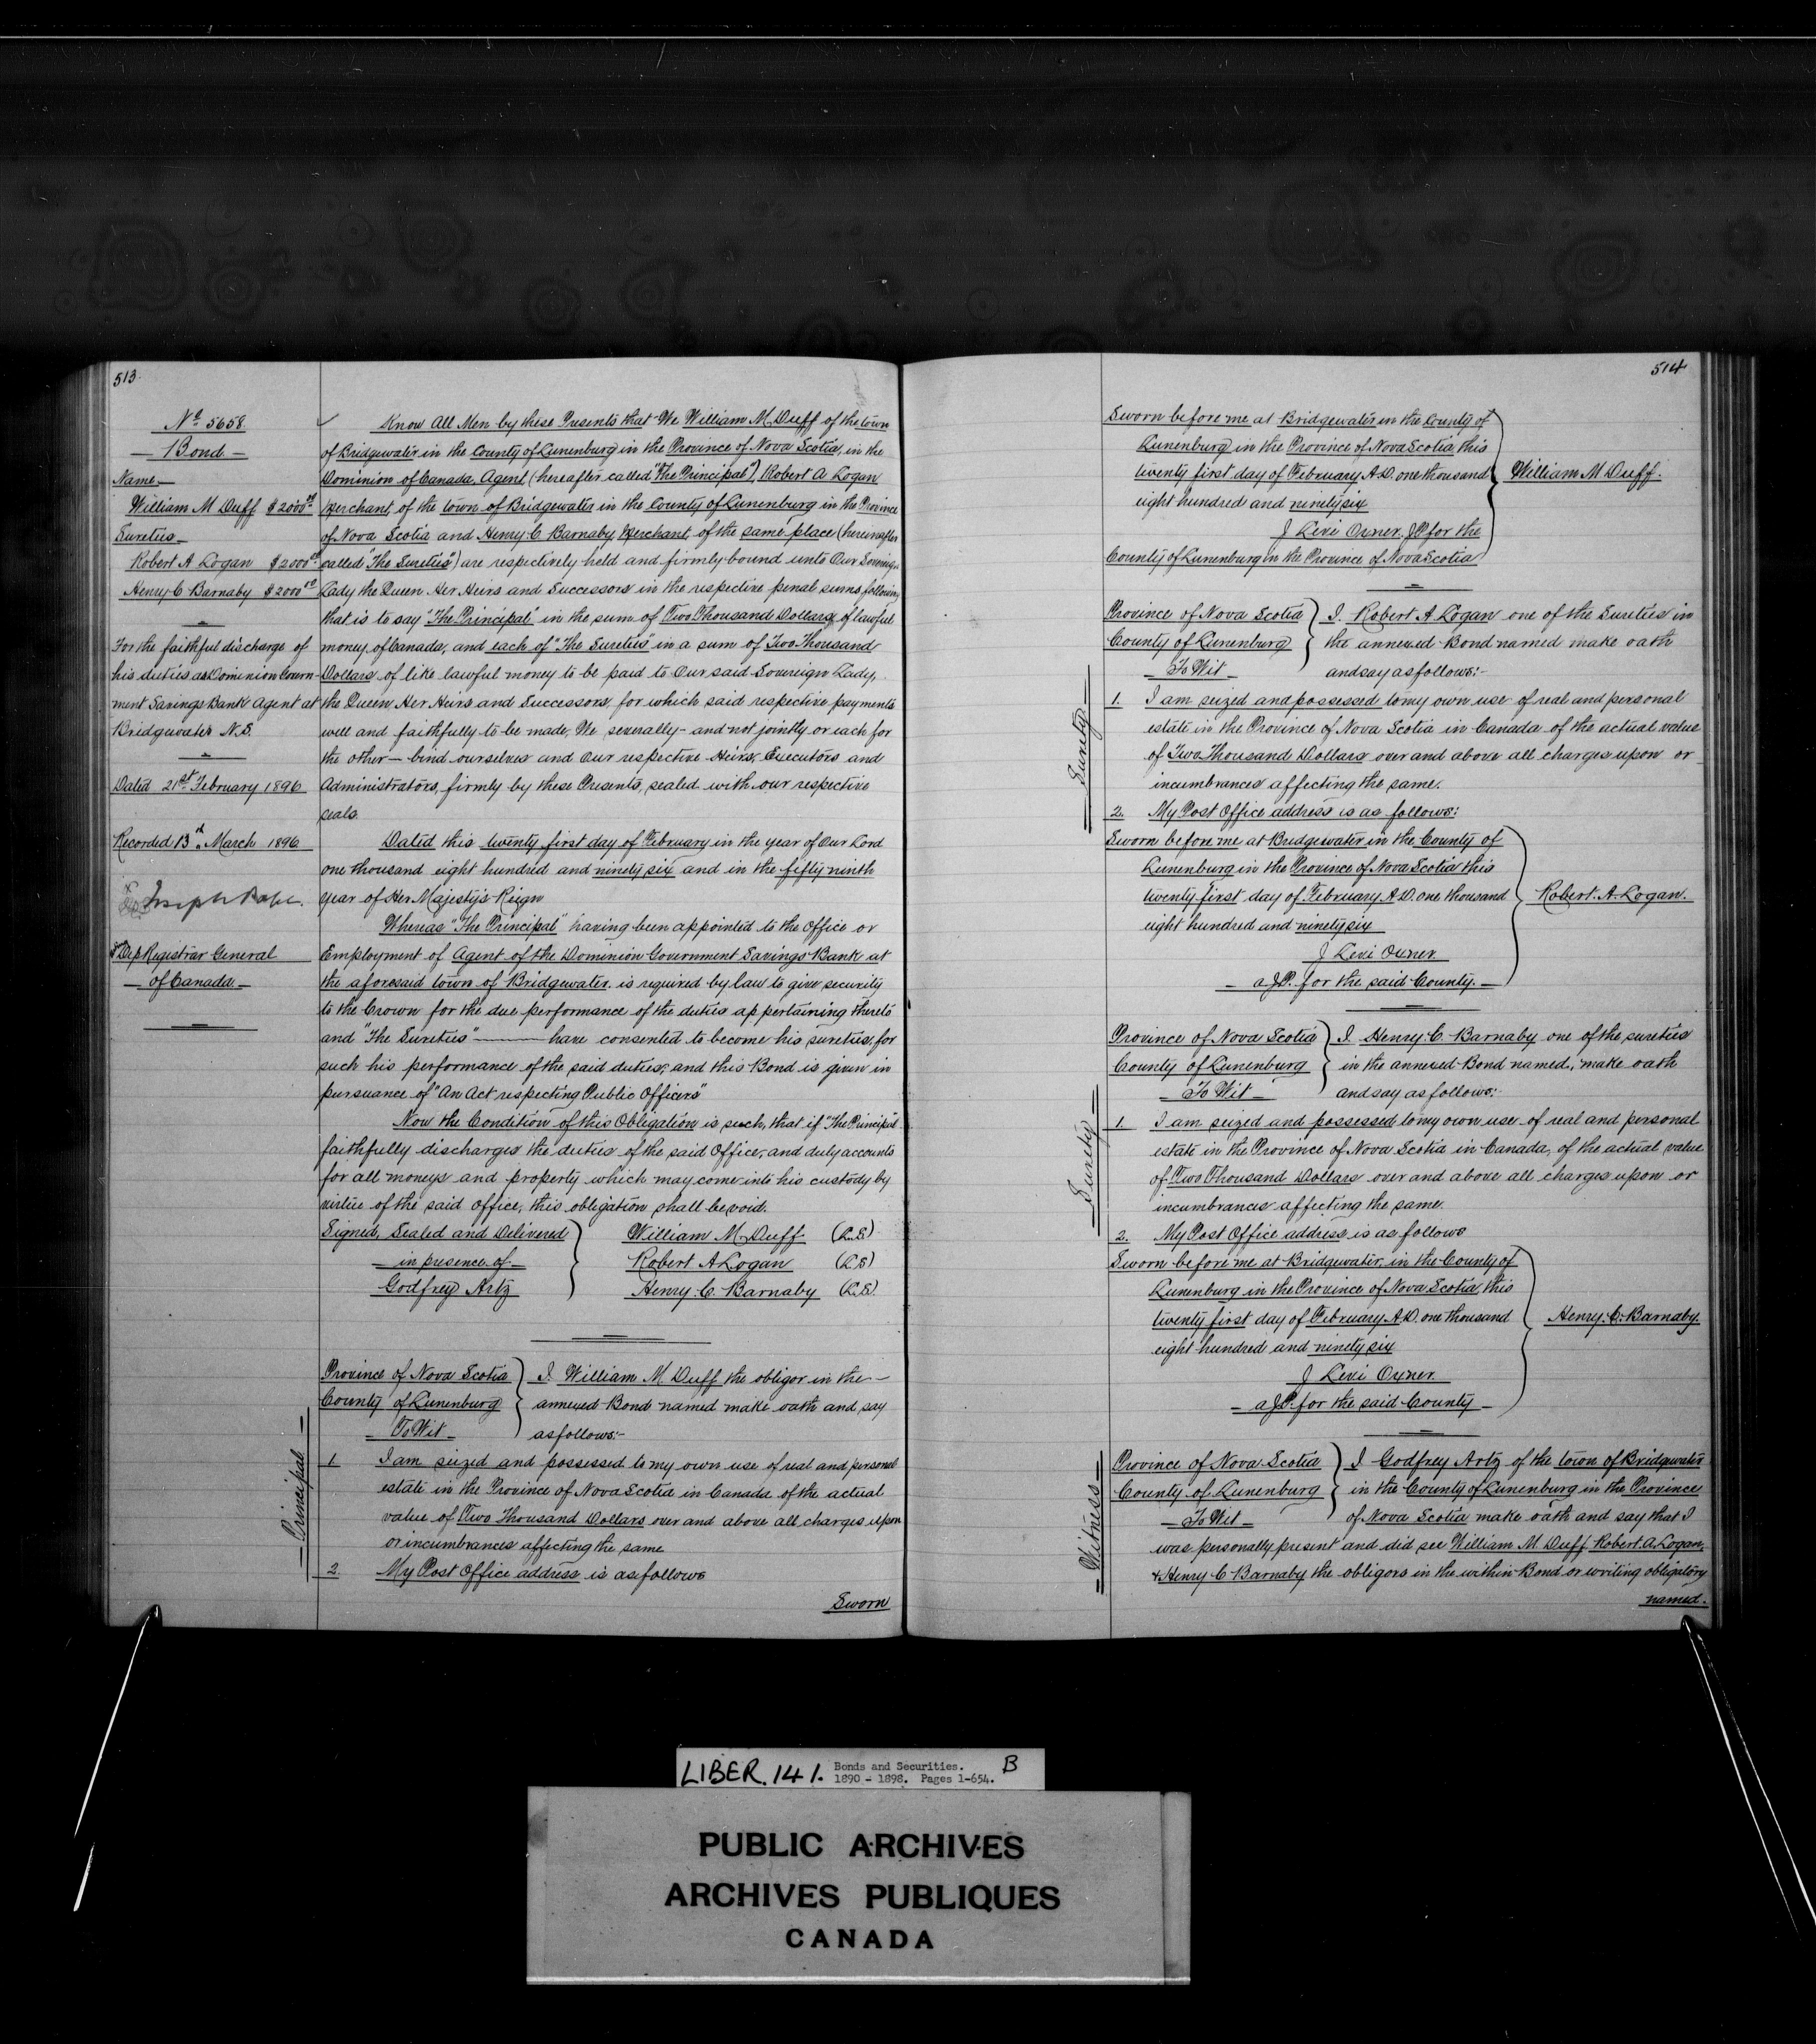 513.
Nº 5658.
Bond
Name
William M Duff $2000.00
Sureties
Robert A Logan $2000.00
Henry C Barnaby $2000.00
For the faithful discharge of
his duties as Dominion Govern-
ment Savings Bank Agent at
Bridgewater N.S.
Dated 21st February 1896
Recorded 13th March 1896
Joseph Pope.
Dep Registrar General
of Canada
Know All Men by these Presents that We William M Duff of the town
of Bridgewater in the County of Lunenburg in the Province of Nova Scotia, in the
Dominion of Canada, Agent (hereafter called "The Principal"), Robert A Logan
Merchant, of the town of Bridgewater in the County of Lunenburg in the Province
of Nova Scotia and Henry C Barnaby, Merchant, of the same place (hereinafter
called "The Sureties") are respectively held and firmly bound unto Our Sovereign
Lady the Queen Her Heirs and Successors in the respective penal sums following
that is to say "The Principal" in the sum of Two Thousand Dollars of lawful
money of Canada, and each of "The Sureties" in a sum of Two Thousand
Dollars of like lawful money to be paid to Our said Sovereign Lady,
the Queen Her Heirs and Successors, for which said respective payments
well and faithfully to be made, We severally – and not jointly or each for
the other – bind ourselves and Our respective Heirs, Executors and
Administrators, firmly by these Presents, sealed with our respective
seals.
Dated this twenty first day of February in the year of Our Lord
one thousand eight hundred and ninety six and in the fifty ninth
year of Her Majesty's Reign
Whereas "The Principal" having been appointed to the Office or
Employment of Agent of the Dominion Government Savings Bank at
the aforesaid town of Bridgewater, is required by law to give security
to the Crown for the due performance of the duties appertaining thereto
and "The Sureties" ——— have consented to become his sureties, for
such his performance of the said duties; and this Bond is given in
pursuance of "An Act respecting Public Officers"
Now the Condition of this Obligation is such, that if "The Principal"
faithfully discharges the duties of the said Office, and duly accounts
for all moneys and property which may come into his custody by
virtue of the said office, this obligation shall be void.
Signed, Sealed and Delivered William M Duff (L.S)
in presence of Robert A Logan (L.S)
Godfrey Artz Henry C. Barnaby (L.S)
Province of Nova Scotia I William M Duff the obligor in the
County of Lunenburg annexed Bond named make oath and say
To Wit as follows:-
Principal
1 I am seized and possessed to my own use of real and personal
estate in the Province of Nova Scotia in Canada of the actual
value of Two Thousand Dollars over and above all charges upon
or incumbrances affecting the same
2. My Post Office address is as follows
Sworn
514
Sworn before me at Bridgewater in the County of
Lunenburg in the Province of Nova Scotia this
twenty first day of February A.D. one thousand William M Duff.
eight hundred and ninety six
J Levi Oxner. JP for the
County of Lunenburg in the Province of Nova Scotia
Province of Nova Scotia I, Robert A Logan one of the Sureties in
County of Lunenburg the annexed Bond named make oath
To Wit and say as follows:-
Surety
1. I am seized and possessed to my own use of real and personal
estate in the Province of Nova Scotia in Canada of the actual value
of Two Thousand Dollars over and above all charges upon or
incumbrances affecting the same.
2. My Post Office address is as follows:
Sworn before me at Bridgewater in the County of
Lunenburg in the Province of Nova Scotia this
twenty first day of February A.D. one thousand Robert. A. Logan.
eight hundred and ninety six
J Levi Oxner
a JP. for the said County.
Province of Nova Scotia I Henry C. Barnaby one of the sureties
County of Lunenburg in the annexed Bond named, make oath
To Wit and say as follows:-
Surety
1. I am seized and possessed to my own use of real and personal
estate in the Province of Nova Scotia in Canada, of the actual value
of Two Thousand Dollars over and above all charges upon or
incumbrances affecting the same.
2. My Post Office address is as follows
Sworn before me at Bridgewater, in the County of
Lunenburg in the Province of Nova Scotia, this
twenty first day of February A.D. one thousand Henry. C. Barnaby.
eight hundred and ninety six
J Levi Oxner
a JP. for the said County
Witness
Province of Nova Scotia I Godfrey Artz of the town of Bridgewater
County of Lunenburg in the County of Lunenburg in the Province
To Wit of Nova Scotia make oath and say that I
was personally present and did see William M. Duff Robert. A. Logan,
& Henry C Barnaby the obligors in the within Bond or writing obligatory
named.
LIBER. 141. Bonds and Securities. B
1890 - 1898. Pages 1-654.
PUBLIC ARCHIVES
ARCHIVES PUBLIQUES
CANADA